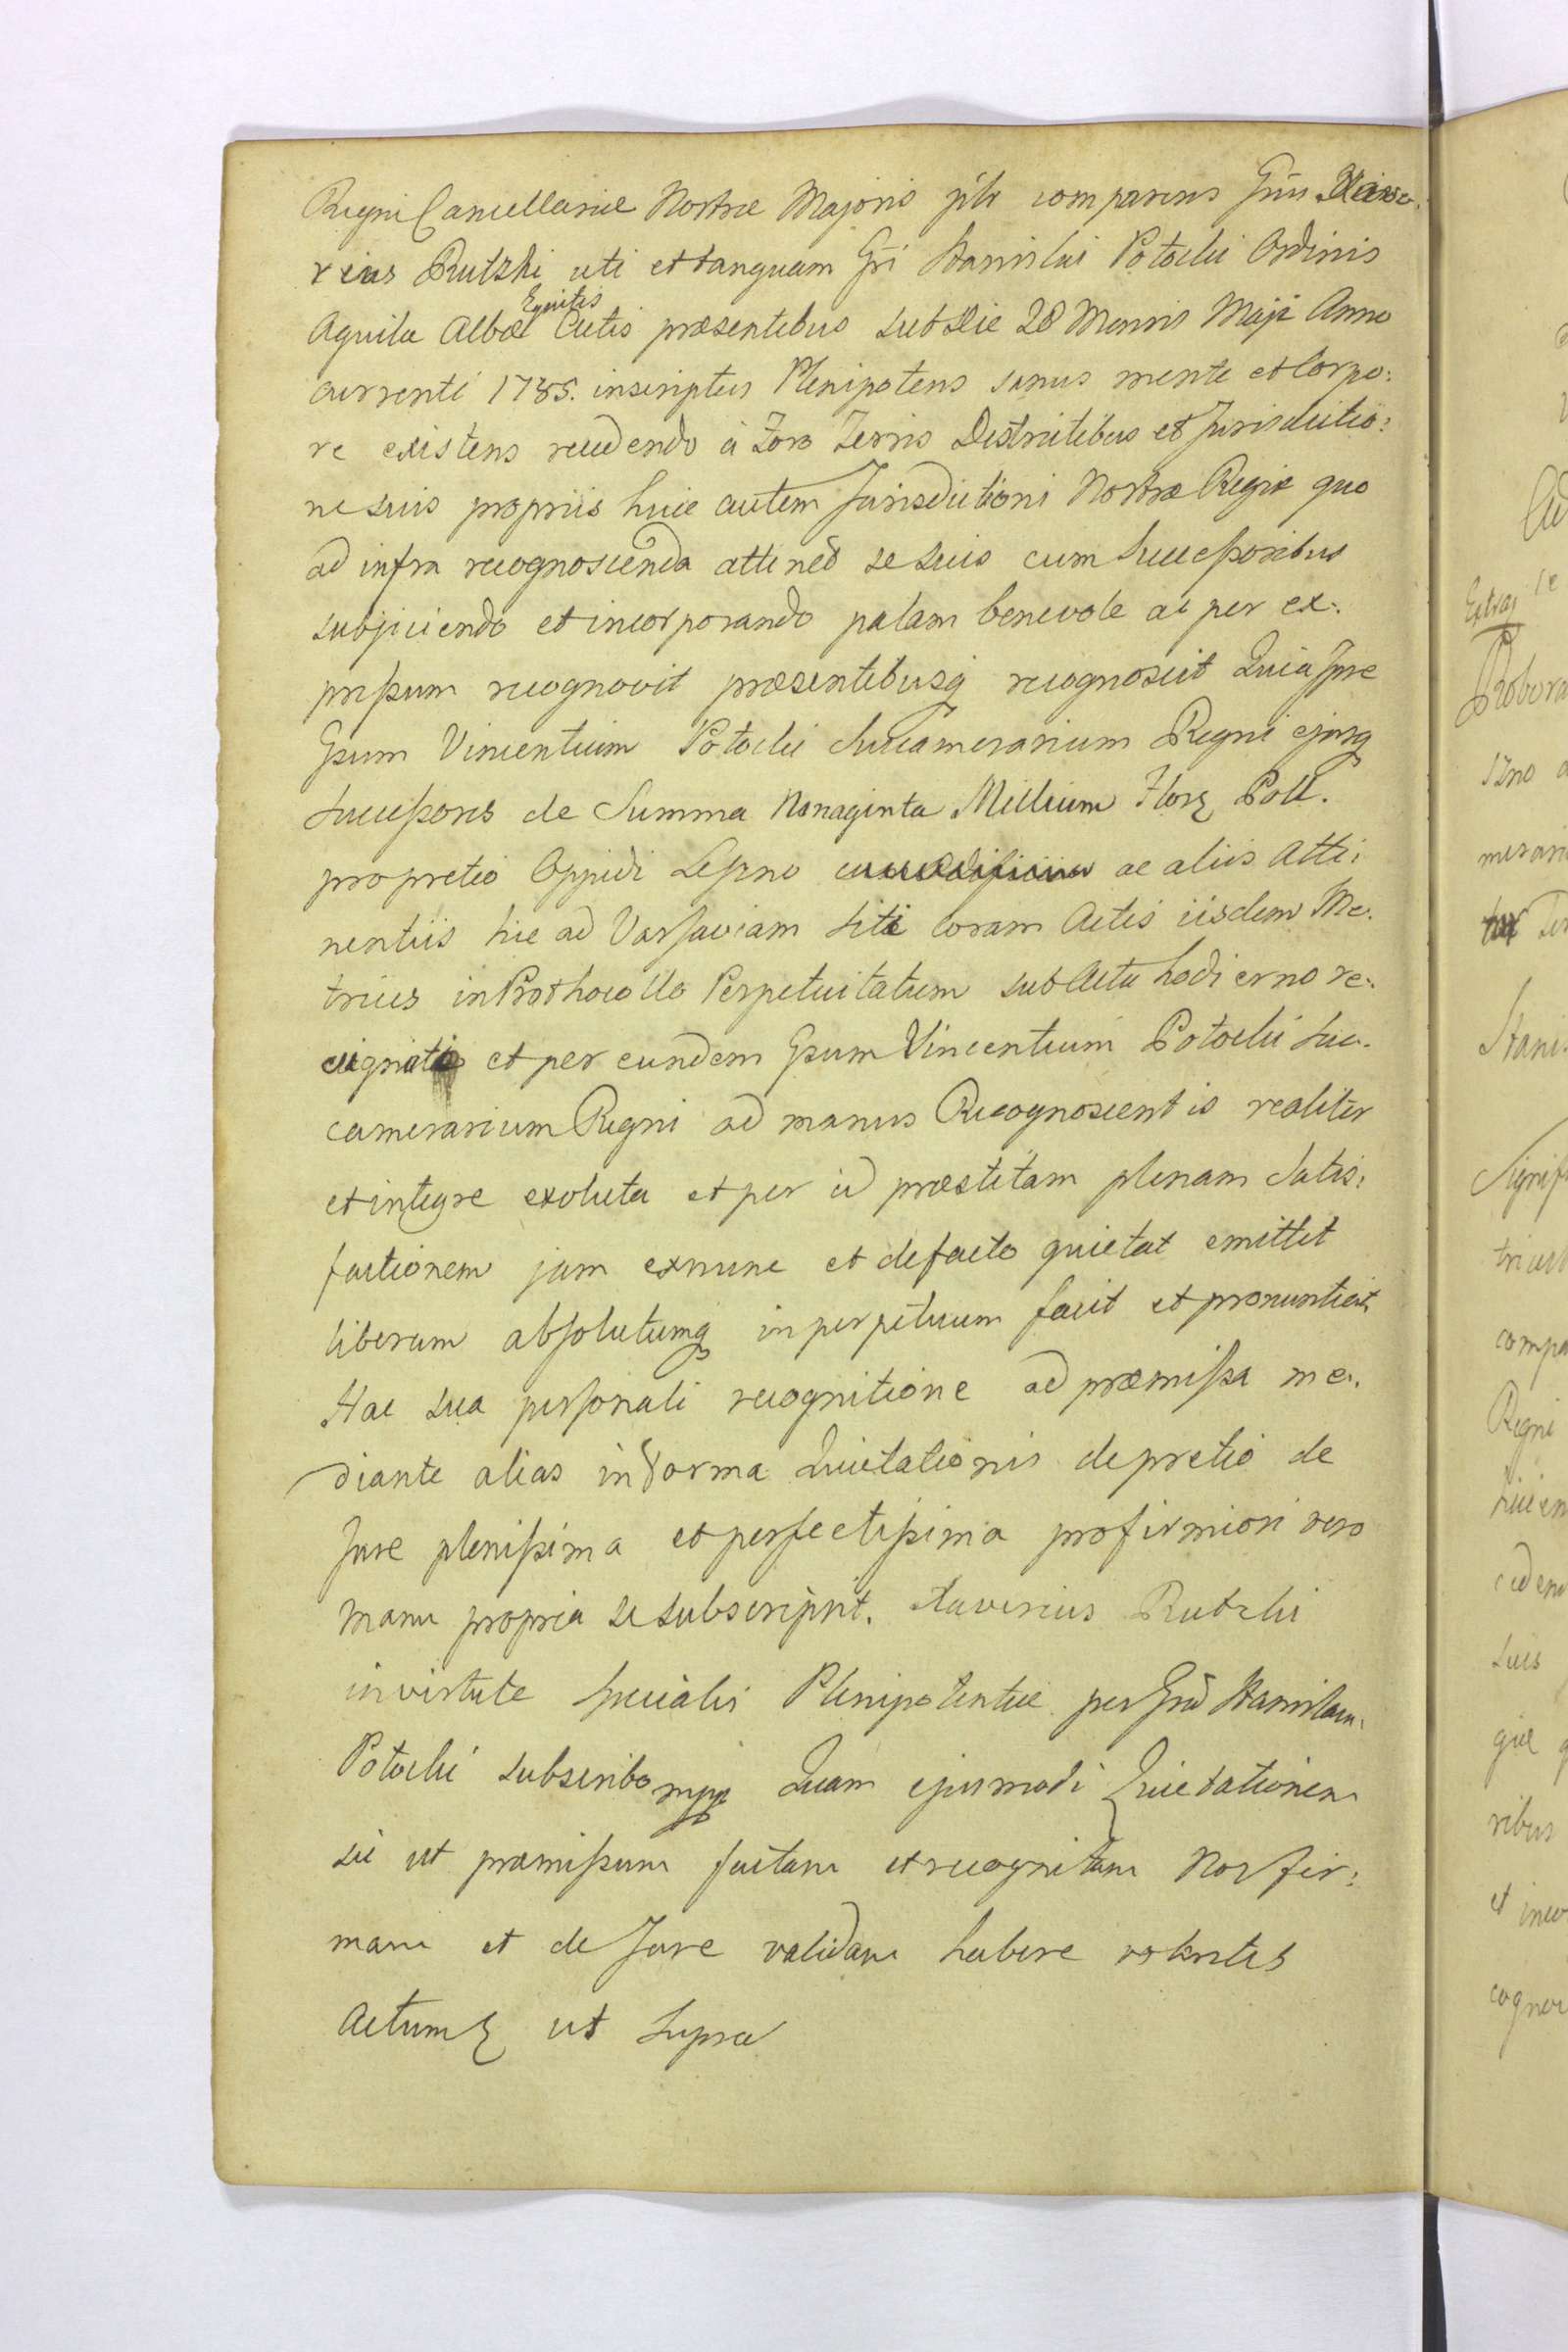 Regni Cancellariæ Nostræ Majoris pstr comparens Gñus Xave
rius Rutzki uti et tanquam Gñi Stanislai Potocki Ordinis
Equitis
Aquilæ Albæ Actis præsentibus sub Die 28 Mensis Maji Anno
currenti 1785. inscriptus Plenipotens sanus mente et Corpo:
re existens recedendo à Foro Terris Districtibus et Jurisdictio:
ne suis propriis huic autem Jurisdictioni Nostræ Regiæ quo
ad infra recognoscenda attinet se suis cum Successoribus
subjiciendo et incorporando palam benevole ac per ex:
pressum recognovit præsentibusq recognoscit Quia Ipse
Gsum Vincentium Potocki Succamerarium Regni ejusq
Successores de Summa Nonaginta Millium Flor Poll.
pro pretio Oppidi Leszno ac aliis Atti:
nentiis hic ad Varsaviam siti coram Actis iisdem Me:
trices in Prothocollo Perpetuitatum sub Actu hodierno re:
signati et per eundem Gsum Vincentium Potocki Suc:
camerarium Regni ad manus Recognoscentis realiter
et integre exoluta et per id præstitam plenam Satis:
factionem jam exnunc et defacto quietat emittit
liberum absolutumq in perpetuum facit et pronuntiat
Hac sua personali recognitione ad præmissa me:
diante alias in Forma Quietationis de pretio de
Jure plenissima et perfectissima pro firmiori vero
manu propria se subscripsit. Xaverius Rutzki
in virtute specialis Plenipotentiæ per Gñu Stanislaum
Potocki subscribo mpp Quam ejusmodi Quietationem
sic ut præmissum factam et recognitam Nos fir:
mam et de Jure validam habere volentes
Actum ut supra
Extraj
Robora
Stanis
Regni